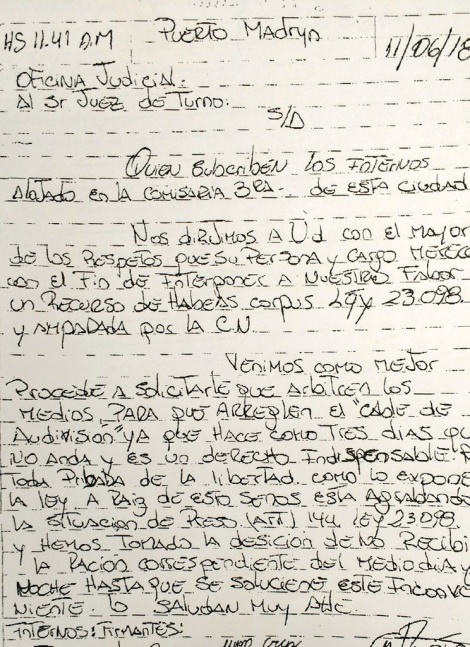 HS 11.41 A.M PUERTO MADRYN 11/06/18
OFICINA JUDICIAL:
Al Sr JUEZ de TURNO:
S/D
QUIEN SUBSCRIBEN LOS INTERNOS
AlOJADO EN LA COMISARIA 3RA- de ESTA CIUDAD
NOS DIRIJIMOS A Ud CON el MAYOR
de los RESPETOS QUE SU PERSONA y CARGO MERECE
CON el FIN de INTERPONER A NUESTRO FAVOR
UN RECURSO de HABEAS CORPUS LEY 23.098
y AMPARADA POR LA C.N
VENIMOS COMO MEJOR
PROCEDE A SOLICITARLE QUE ARBITREN los
MEDIOS PARA QUE ARREGLEN el "CABLE de
AUDIVISION" YA QUE HACE COMO TRES DIAS QU
NO ANDA y ES UN dERECHO INdISPENSABLE P
TODA PRIBADA de lA lIBERTAD COMO lo EXPONE
lA lEY A RAIZ de ESTO SENOS ESTA AGRABANDO
lA SITUACION de PRESO (ART) 144 lEY 23098
y HEMOS TOMADO lA dESICION de NO RECIBI
lA RACION CORRESPONDIENTE del MEDIODIA y
NOCHE HASTA QUE SE SOLUCIONE ESTE INCONVE
NIENTE. lO SALUDAN MUY ATTE.
INTERNOS: FIRMANTES: